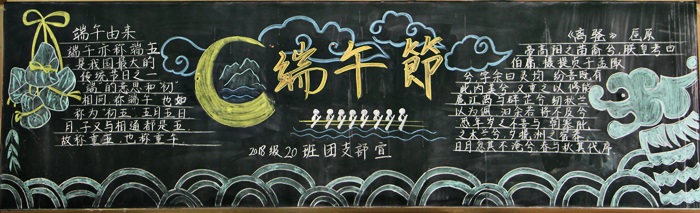 端午由来
端午亦称端五
是我国最大的
传统节日之一
端的意思和"初"
相同,称"端午"也如
称为"初五";五月五日
月,子又与相通都是五.
故称重五,也称重午.
端午節
2018级20班团支部宣
《离骚》 屈原
帝高阳之苗裔兮,朕皇考曰
伯庸.摄提贞于孟陬
兮,字余曰灵均.纷吾既有
此内美兮,又重之以修能.
扈江离与辟芷兮,纫秋兰
以为佩.汩余若将不及兮
恐年岁之不吾与.朝搴阰
之木兰兮,夕揽洲之宿莽.
日月忽其不淹兮,春与秋其代序